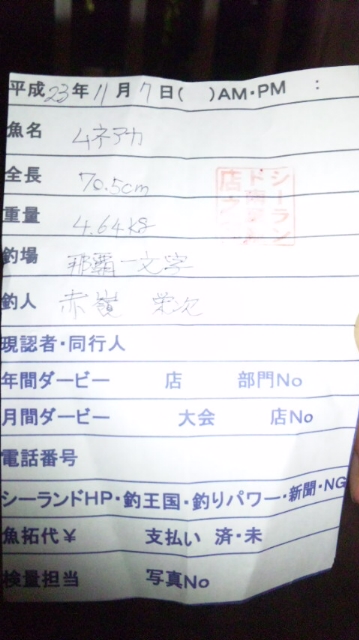 平成23年11月7日( )AM・PM :
魚名 ムネアカ
全長 70.5cm
重量 4.64kg
釣場 那覇一文字
釣人 赤嶺 栄次
現認者・同行人
年間ダービー 店 部門No
月間ダービー 大会 店No
電話番号
シーランドHP・釣王国・釣りパワー・新聞・NG
魚拓代¥ 支払い 済・未
検量担当 写真No
シーラン